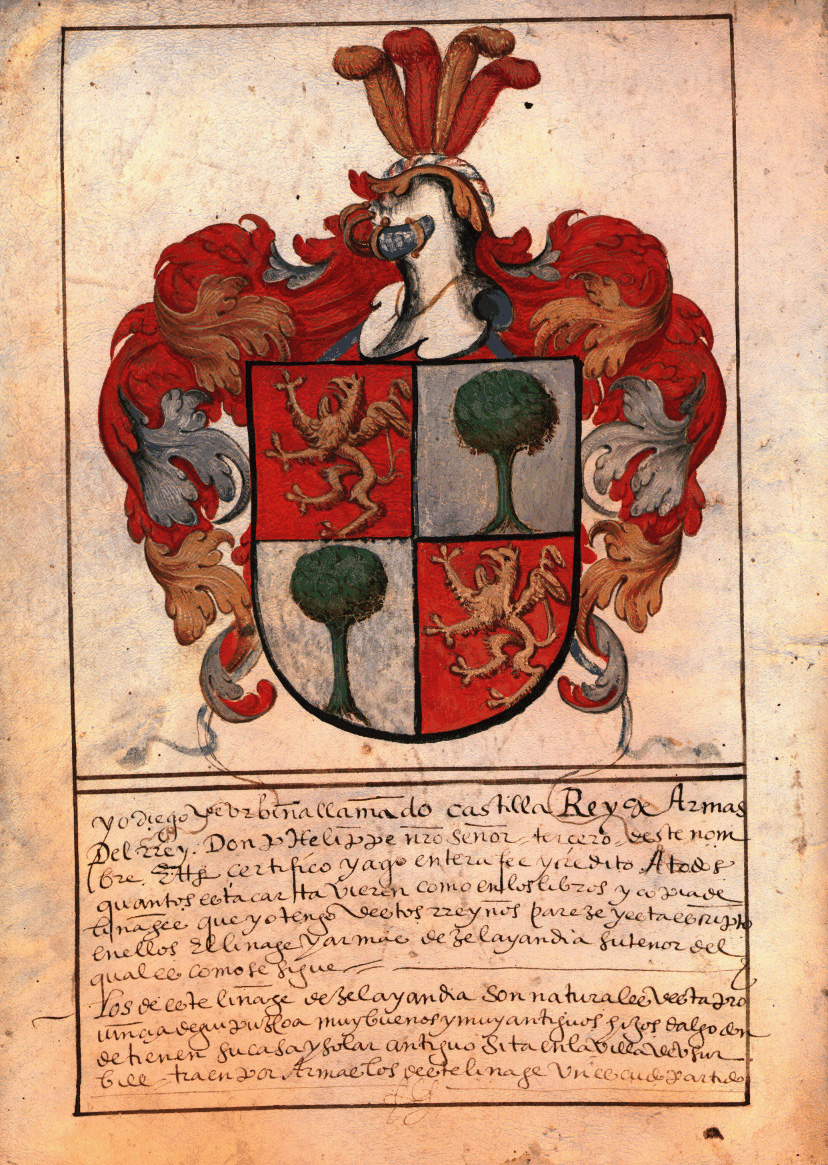 yo diego de vrbina llamado castilla Rey de Armas
Del rrey Don phelippe nro Señor tercero deste nom
bre certifico y ago entera fee y credito A todos
quantos esta carta vieren como en los libros y copia de
linages que yo tengo destos rreynos pareze y esta escripto
en ellos El linage y armas de zelayandia su tenor del
qual es como se sigue
Los de este linage de zelayandia son naturales desta pro
uincia de guipuzcoa muy buenos y muy antiguos hijos dalgo don
de tienen su casa y solar antiguo sita en la villa de vsur
bil traen por Armas los deste linage vn escudo partido